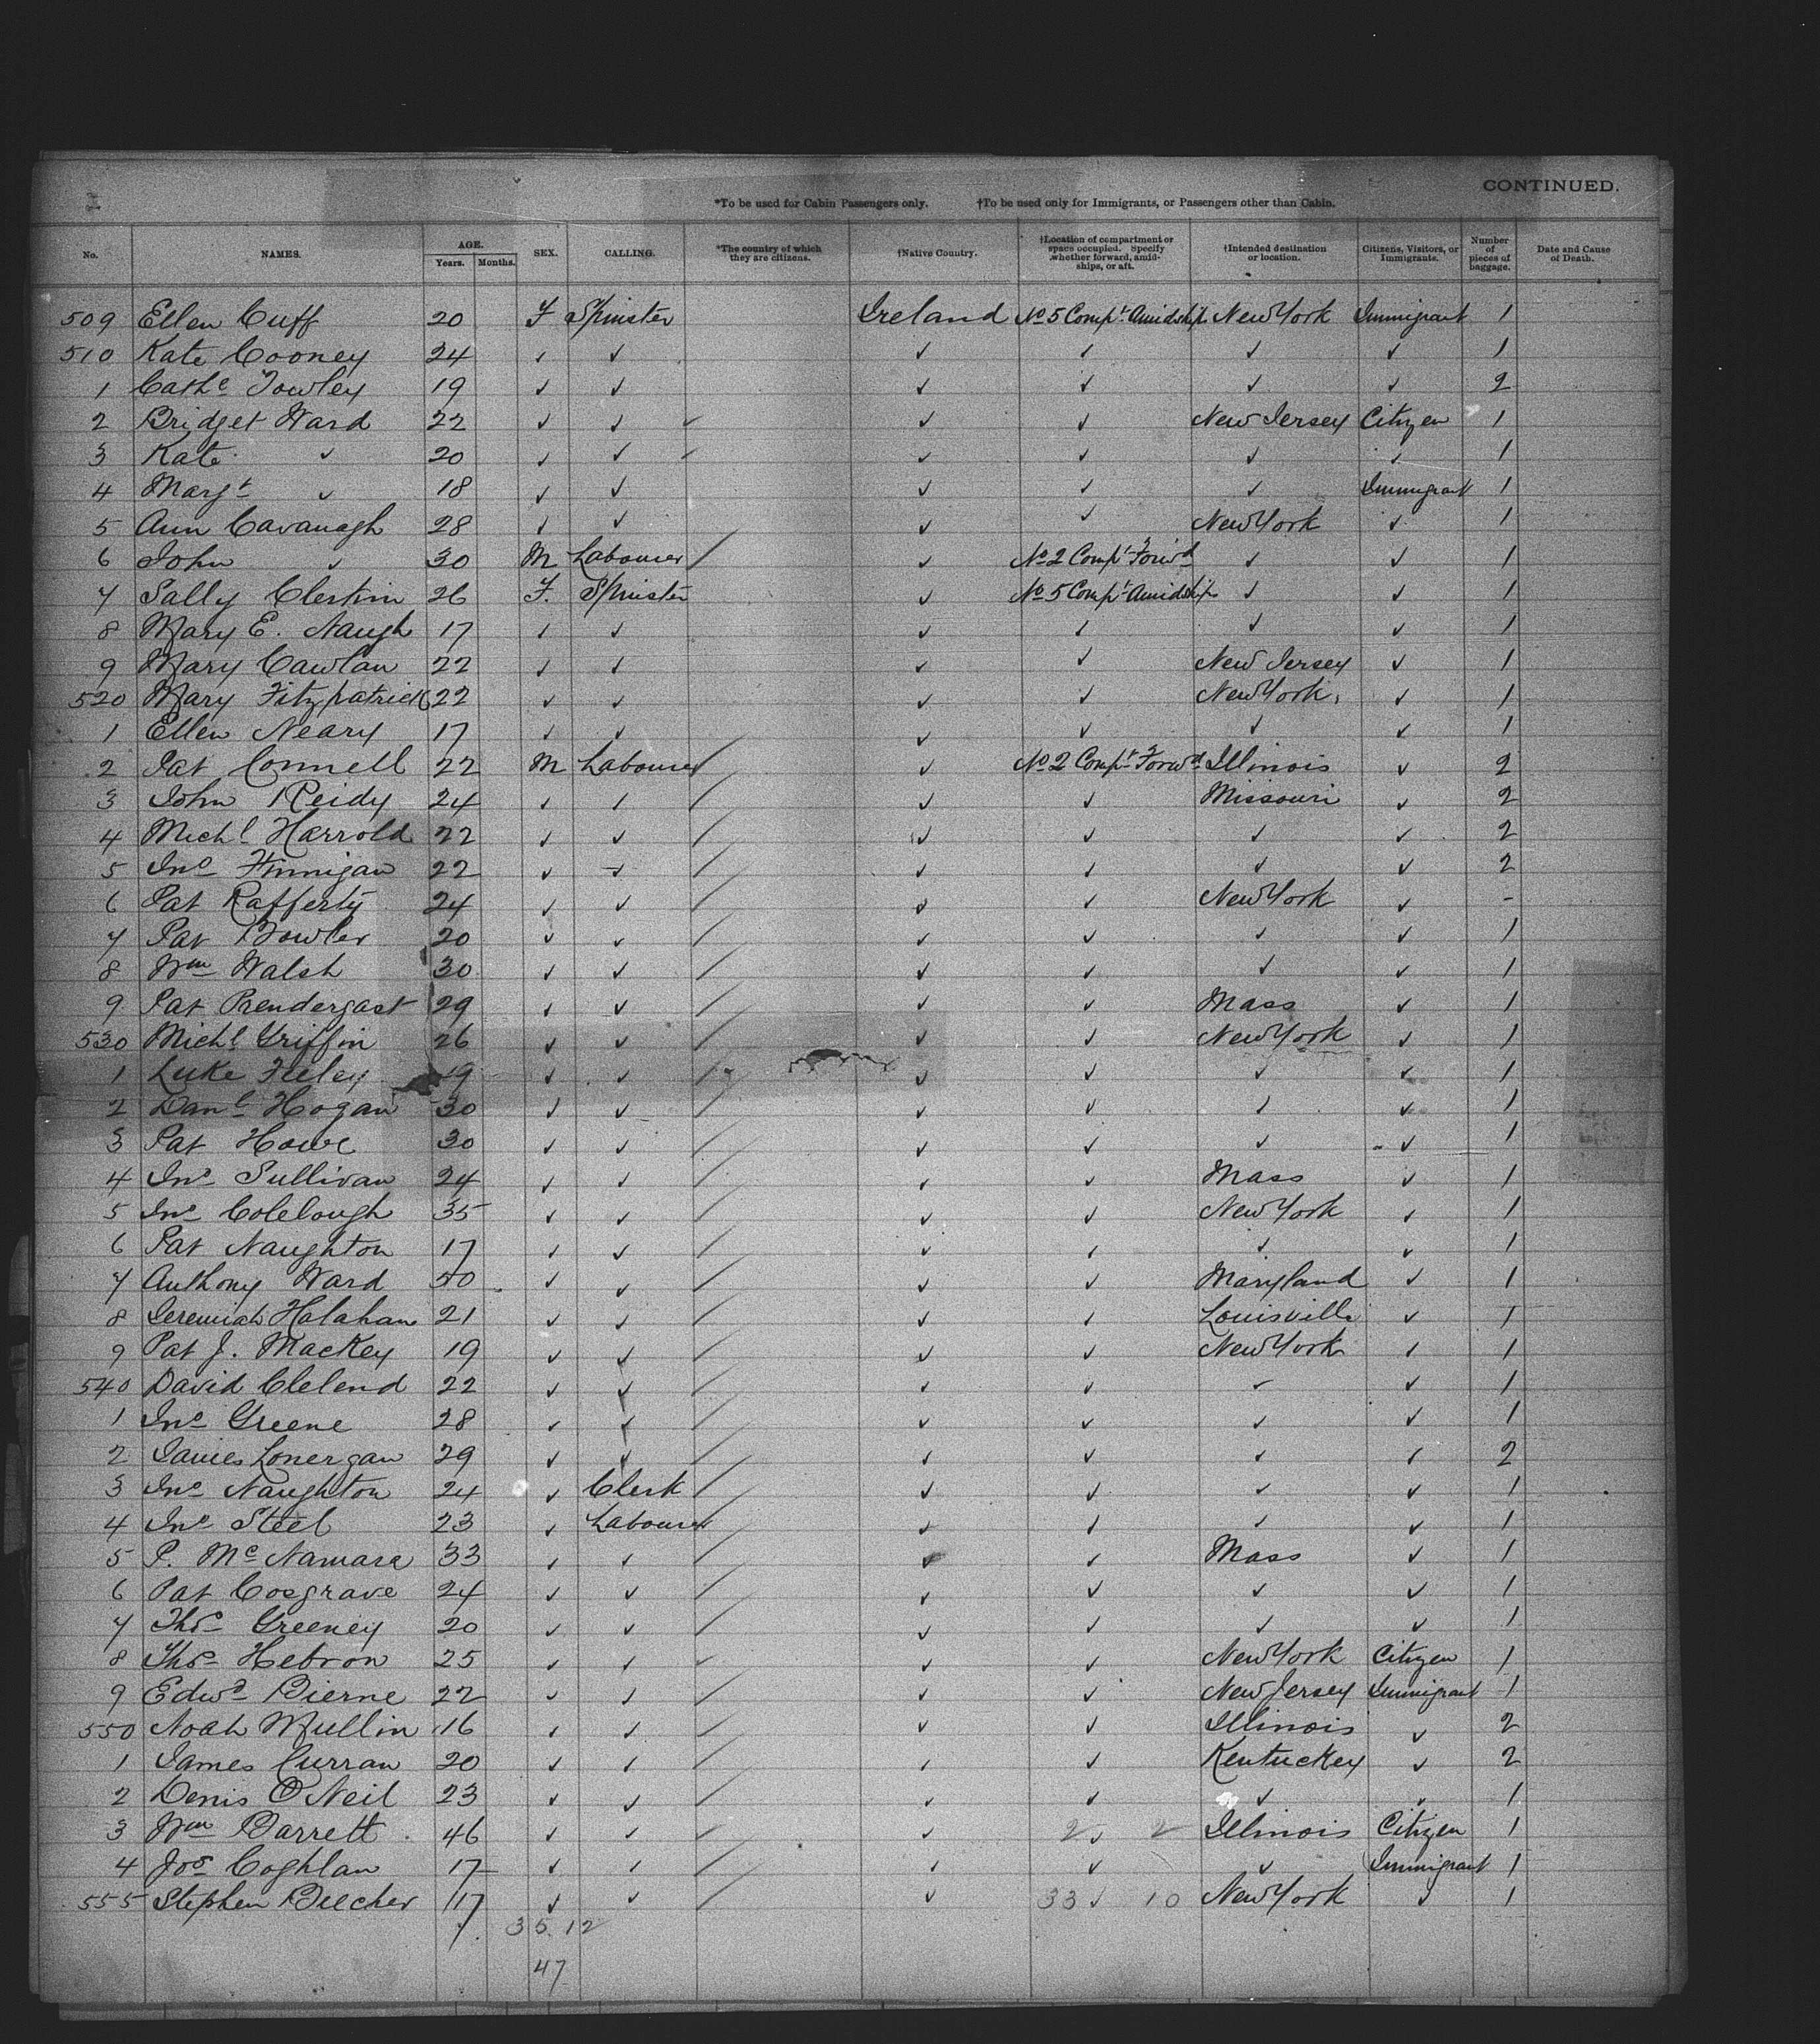 CONTINUED.
*To be used for Cabin Passengers only. †To be used only for Immigrants, or Passengers other than Cabin.
No. NAMES. AGE. Years. Months. SEX. CALLING. *The country of which they are citizens. †Native Country. †Location of compartment or space occupied. Specify whether forward, amidships, or aft. †Intended destination or location. Citizens, Visitors, or Immigrants. Number of pieces of baggage. Date and Cause of Death.
509 Ellen Cuff 20 F Spinster Ireland No 5 Compt. Amidship New York Immigrant 1
510 Kate Cooney 24 ✓ ✓ ✓ ✓ ✓ ✓ 1
1 Cathe Towley 19 ✓ ✓ ✓ ✓ ✓ ✓ 2
2 Bridget Ward 22 ✓ ✓ ✓ ✓ ✓ New Jersey Citizen 1
3 Kate ✓ 20 ✓ ✓ ✓ ✓ ✓ ✓ ✓ 1
4 Margt ✓ 18 ✓ ✓ ✓ ✓ ✓ Immigrant 1
5 Ann Cavanagh 28 ✓ ✓ ✓ ✓ New York ✓ 1
6 John ✓ 30 M Labourer / ✓ No 2 Compt Forwd ✓ ✓ 1
7 Sally Clerkin 26 F. Spinster ✓ No 5 Compt Amidship ✓ ✓ 1
8 Mary E. Naugh 17 ✓ ✓ ✓ ✓ ✓ ✓ 1
9 Mary Cawlan 22 ✓ ✓ ✓ ✓ New Jersey ✓ 1
520 Mary Fitzpatrick 22 ✓ ✓ ✓ ✓ New York ✓ 1
1 Ellen Neary 17 ✓ ✓ ✓ ✓ ✓ ✓ 1
2 Pat Connell 22 M Labourer / ✓ No 2 Compt Forwd Illinois ✓ 2
3 John Reidy 24 ✓ ✓ / ✓ ✓ Missouri ✓ 2
4 Michl Harrold 22 ✓ ✓ / ✓ ✓ ✓ ✓ 2
5 Jno Finnigan 22 ✓ ✓ / ✓ ✓ ✓ ✓ 2
6 Pat Rafferty 24 ✓ ✓ / ✓ ✓ New York ✓ -
7 Pat Bowler 20 ✓ ✓ / ✓ ✓ ✓ ✓ 1
8 Wm Walsh 30 ✓ ✓ / ✓ ✓ ✓ ✓ 1
9 Pat Prendergast 29 ✓ ✓ / ✓ ✓ Mass ✓ 1
530 Michl Griffin 26 ✓ ✓ / ✓ ✓ New York ✓ 1
1 Luke Feeley 19 ✓ ✓ / ✓ ✓ ✓ ✓ 1
2 Danl Hogan 30 ✓ ✓ / ✓ ✓ ✓ ✓ 1
3 Pat Howe 30 ✓ ✓ / ✓ ✓ ✓ ✓ 1
4 Jno Sullivan 24 ✓ ✓ / ✓ ✓ Mass ✓ 1
5 Jno Colclough 35 ✓ ✓ / ✓ ✓ New York ✓ 1
6 Pat Naughton 17 ✓ ✓ / ✓ ✓ ✓ ✓ 1
7 Anthony Ward 50 ✓ ✓ / ✓ ✓ Maryland ✓ 1
8 Jeremiah Halahan 21 ✓ ✓ / ✓ ✓ Louisville ✓ 1
9 Pat J. Mackey 19 ✓ ✓ / ✓ ✓ New York ✓ 1
540 David Clelend 22 ✓ ✓ / ✓ ✓ ✓ ✓ 1
1 Jno Greene 28 ✓ ✓ / ✓ ✓ ✓ ✓ 1
2 James Lonergan 29 ✓ ✓ / ✓ ✓ ✓ ✓ 2
3 Jno Naughton 24 ✓ Clerk / ✓ ✓ ✓ ✓ 1
4 Jno Steel 23 ✓ Labourer ✓ ✓ ✓ ✓ 1
5 P. McNamara 33 ✓ ✓ / ✓ ✓ Mass ✓ 1
6 Pat Cosgrave 24 ✓ ✓ / ✓ ✓ ✓ ✓ 1
7 Thos Greeney 20 ✓ ✓ / ✓ ✓ ✓ ✓ 1
8 Thos Hebron 25 ✓ ✓ ✓ ✓ ✓ New York Citizen 1
9 Edwd Bierne 22 ✓ ✓ / ✓ ✓ New Jersey Immigrant 1
550 Noah Mullin 16 ✓ ✓ / ✓ ✓ Illinois ✓ 2
1 James Curran 20 ✓ ✓ / ✓ ✓ Kentuckey ✓ 2
2 Denis O'Neil 23 ✓ ✓ / ✓ ✓ ✓ ✓ 1
3 Wm Barrett 46 ✓ ✓ / ✓ 2 ✓ 2 Illinois Citizen 1
4 Jos Coghlan 17 ✓ ✓ / ✓ ✓ ✓ Immigrant 1
555 Stephen Beecher 17 ✓ ✓ / ✓ 33 ✓ 10 New York ✓ 1
35. 12
47